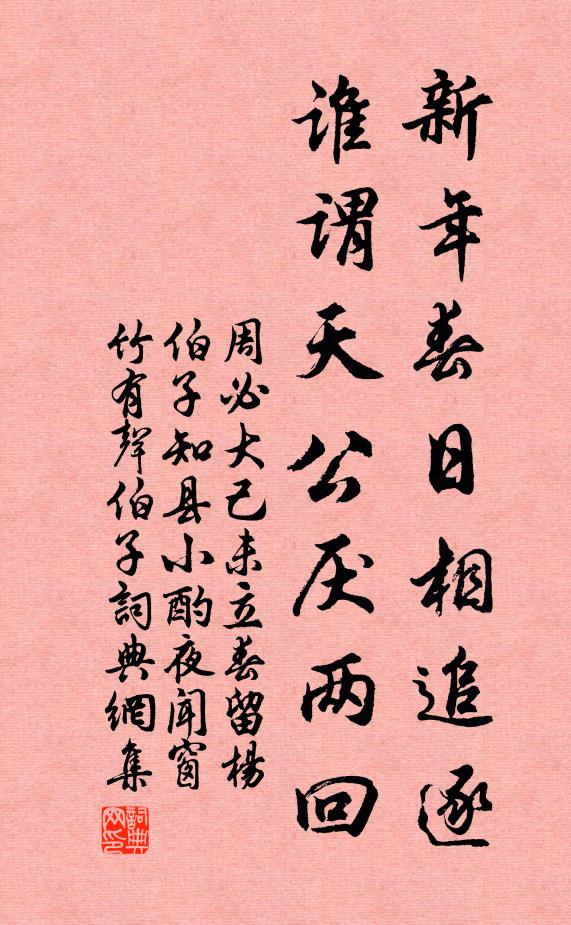 新年春日相追逐
谁谓天公厌两回
周必大己未立春留楊
伯子知县小酌夜闻窗
竹有聲伯子詞典網集
詞典网印